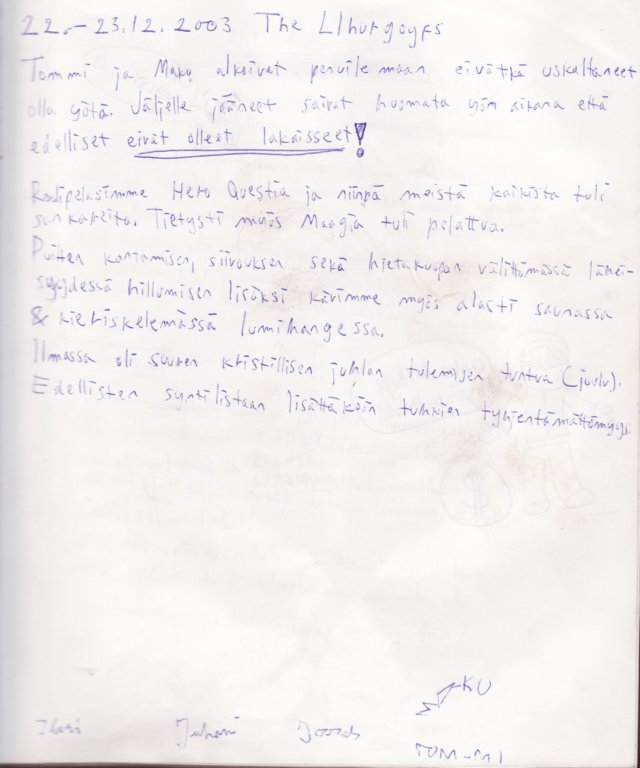 22.-23.12.2003 The Llhurgoyfs
Tommi ja Maku alkoivat penuilemaan eivätkä uskaltaneet
olla yötä. Jäljelle jääneet saivat huomata yön aikana että
edelliset eivät olleet lakaisseet!
Roolipelasimme Hero Questia ja niinpä meistä kaikista tuli
sankareita. Tietysti myös Magia tuli pelattua.
Puiten kantamisen, siivouksen sekä hietakuopan välittömässä lähei-
syydessä hillumisen lisäksi kävimme myös alasti saunassa
& kieriskelemässä lumihangessa.
Ilmassa oli suuren kristillisen juhlan tulemisen tuntua (joulu).
Edellisten syntilistaan lisättäköön tuhkien tyhjentämättömyys.
KU
Juhani
TOM-MI
$